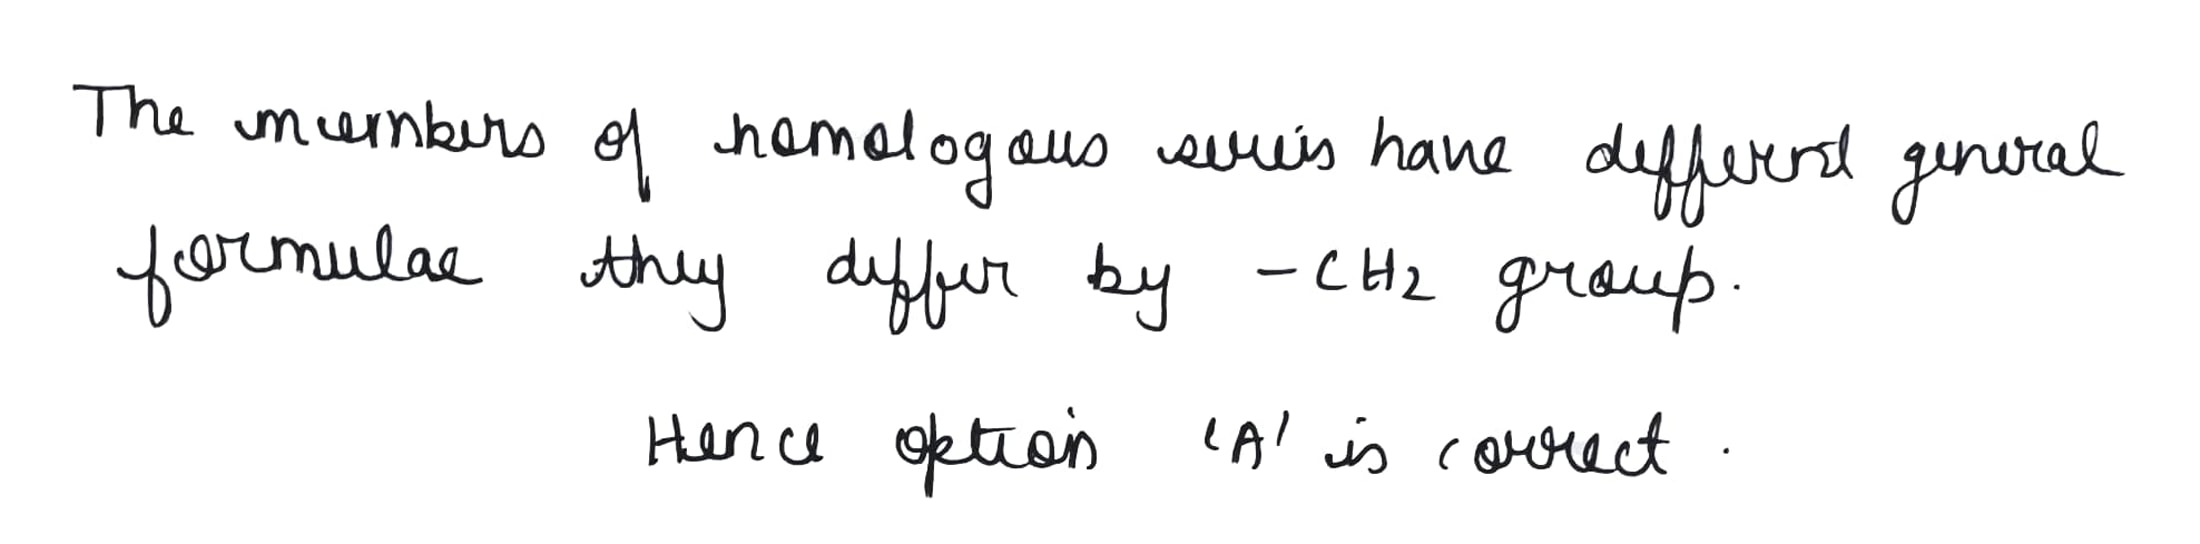 The members of homologous series have different general
formulae they differ by -CH2 group.
Hence option 'A' is correct.